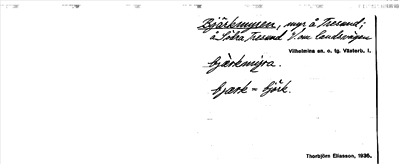 Björkmyren, myr å Tresund;
å Södra Tresund V. om landsvägen
Vilhelmina sn. o. tg. Västerb. l.
bjærkmỳra.
bjærk = björk.
Thorbjörn Eliasson, 1935.